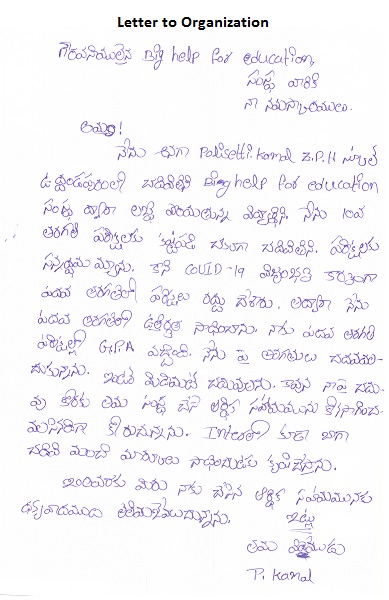 Letter to Organization
గౌరవనీయులైన Big help for education,
సంస్థ వారికి
నా నమస్కారములు.
అయ్యా!
నేను అనగా Palisetti.Kamal Z.P.H స్కూల్
ఉద్దండపురంలో చదివితిని Big help for education
సంస్థ ద్వారా లబ్ధి పొందుతున్న విద్యార్థిని. నేను 10వ
తరగతి పరీక్షలకు కష్టపడి బాగా చదివితిని. పరీక్షలకు
సన్నద్ధమయ్యాను. కానీ COVID-19 విజృంభన కారణంగా
పదవ తరగతి పరీక్షలు రద్దు చేశారు. తద్వారా నేను
పదవ తరగతిలో ఉత్తీర్ణత సాధించాను. నాకు పదవ తరగతి
పరీక్షల్లో G.P.A వచ్చింది. నేను పై తరగతులు చదవమ-
చున్నాను. ఇంటర్ మీడియట్ చదువుటకు. కావున నాపై చదు-
వు కొరకు తమ సంస్థ చేసే ఆర్థిక సహాయమును కొనసాగించ-
వలసినదిగా కోరుచున్నాను. Interలో కూడా బాగా
చదివి మంచి మార్కులు సాధించుటకు కృషిచేస్తాను.
ఇంతవరకు మీరు నాకు చేసిన ఆర్థిక సహాయమునకు
ధన్యవాదములు తెలియజేస్తున్నాను.
ఇట్లు
తమ
P. Kamal